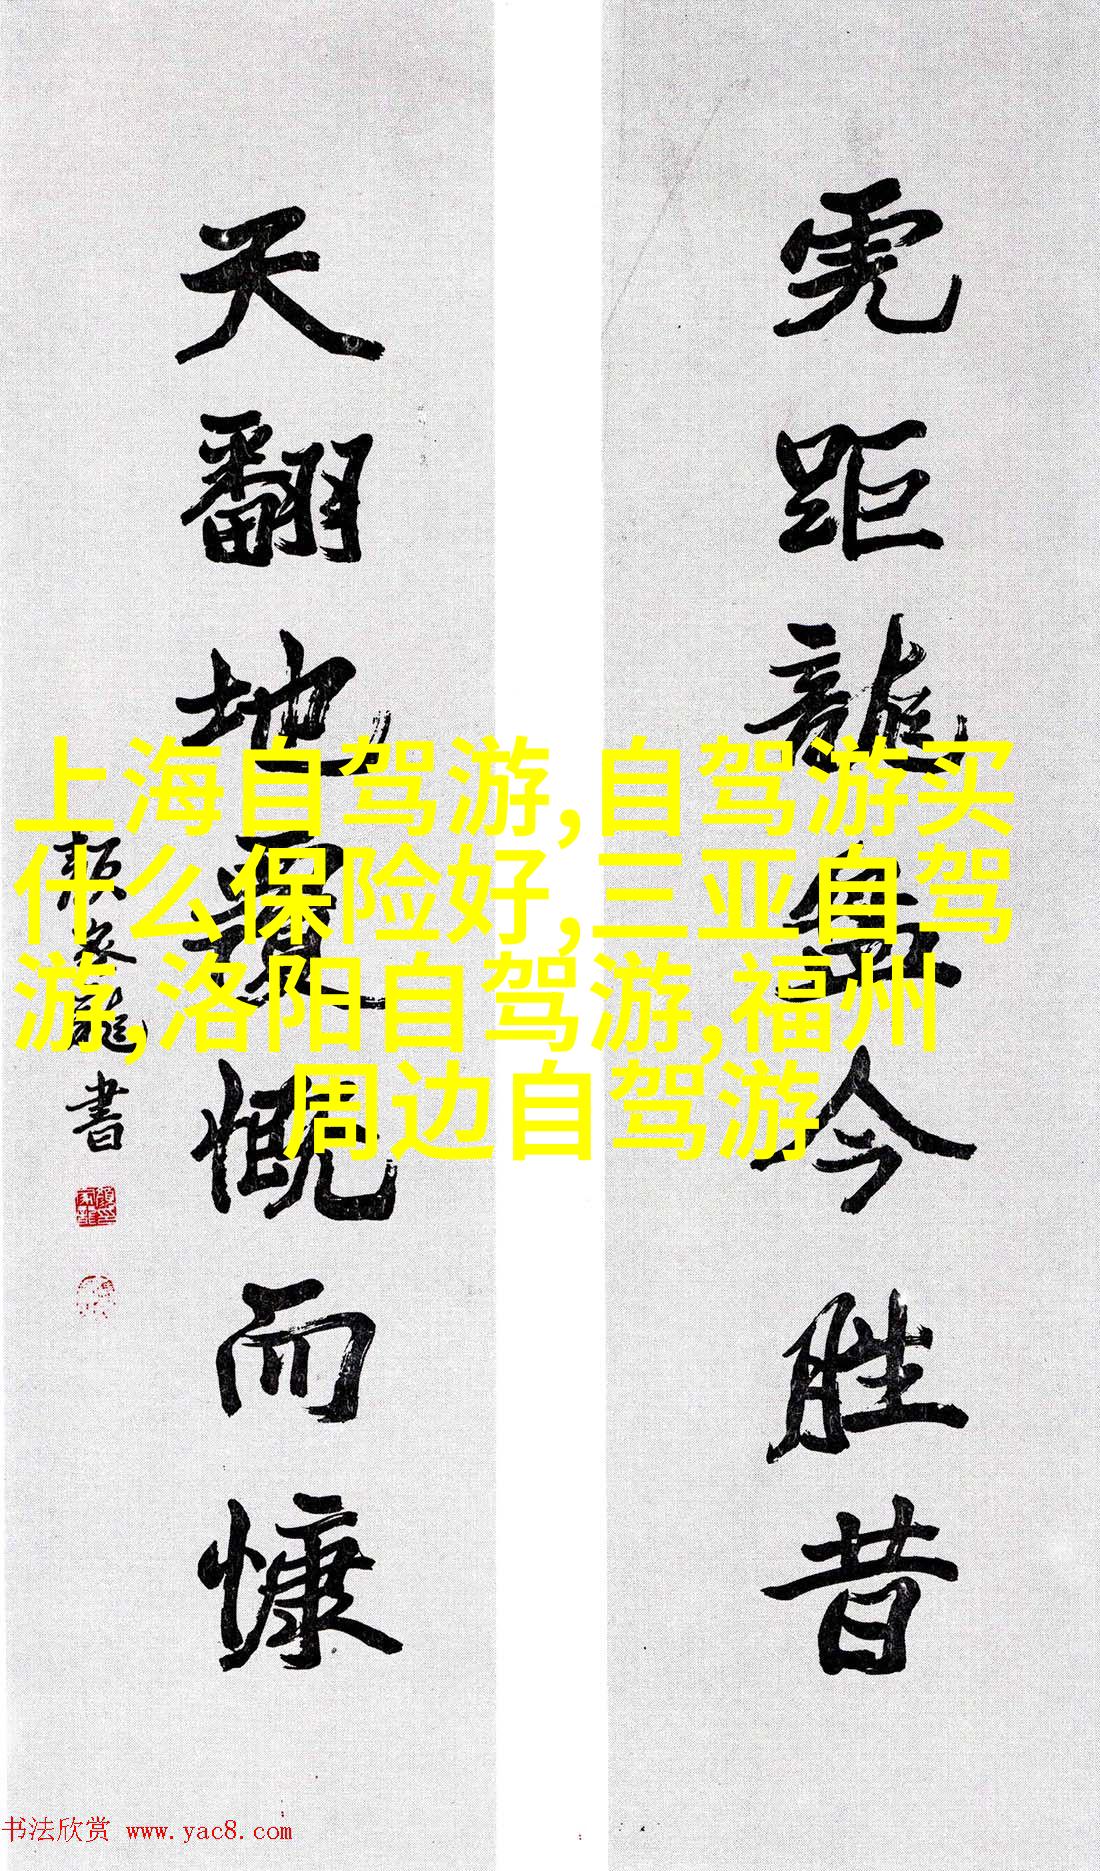 虎距龍盤今胜昔
天翻地覆慨而慷
顏家龍書
上海自驾游,自驾游买
什么保险好,三亚自驾
游,洛阳自驾游,福州
周边自驾游
书法欣赏 www.yac8.com